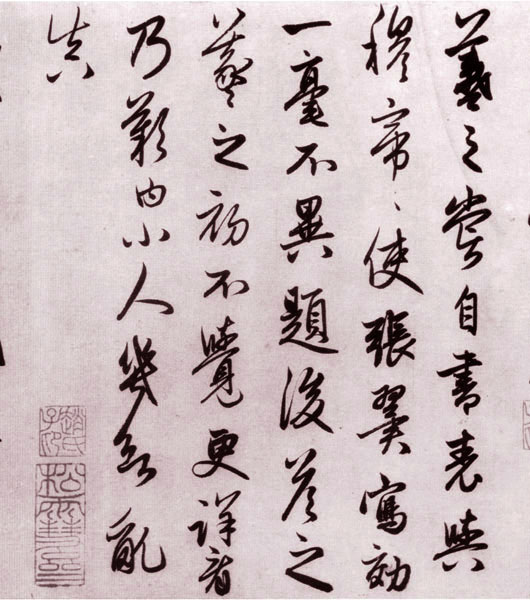 羲之嘗自書表與
穆帝〻使張翼寫効
一毫不異題後答之
羲之初不覺更詳看
乃歎曰小人幾欲亂
真
松雪齋